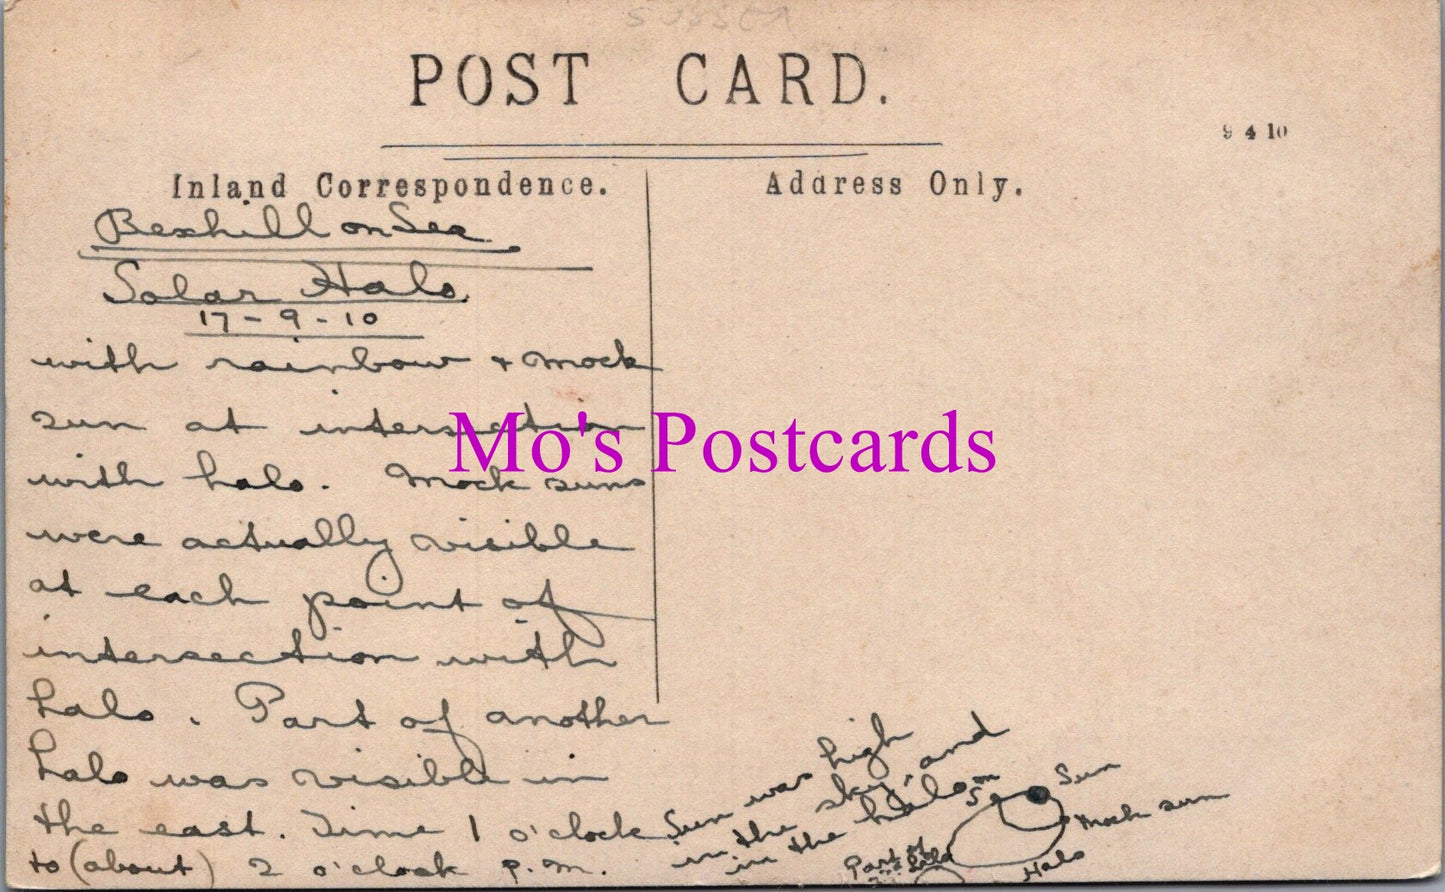 SUSSEX
POST CARD.
9 4 10
Inland Correspondence.
Address Only.
Bexhill on Sea
Solar Halo
17-9-10
with rainbow + mock
sun at intersection
with halo. Mock suns
were actually visible
at each point of
intersection with
halo. Part of another
halo was visible in
the east. Time 1 o'clock
to (about) 2 o'clock p.m.
Sun was high
in the sky, and
in the halo
Sun
Mock sun
Halo
Part of
Mo's Postcards